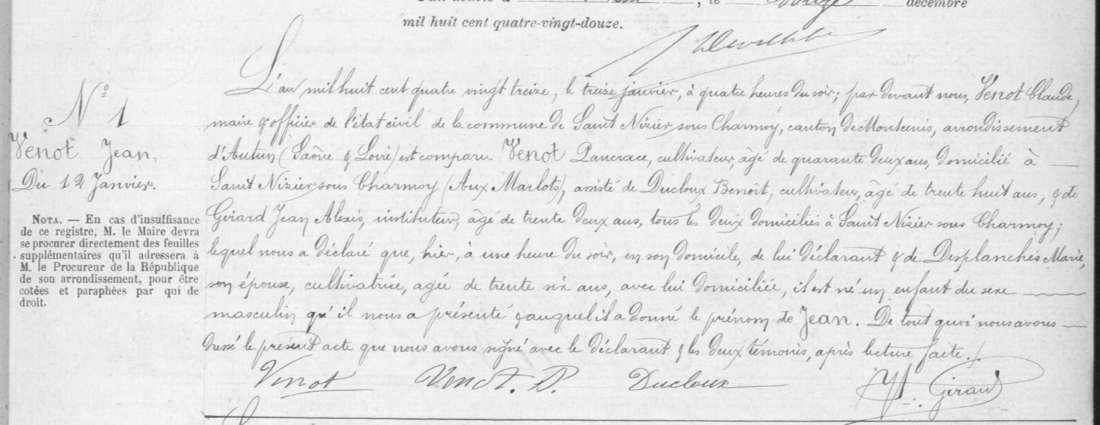 décembre
mil huit cent quatre-vingt-douze.
N° 1
Venot Jean,
Du 12 Janvier.
NOTA. — En cas d'insuffisance
de ce registre, M. le Maire devra
se procurer directement des feuilles
supplémentaires qu'il adressera à
M. le Procureur de la République
de son arrondissement, pour être
cotées et paraphées par qui de
droit.
L'an mil huit cent quatre vingt treize, le treize janvier, à quatre heures du soir; par devant nous, Venot Claude,
maire & officier de l'état civil de la commune de Saint Nizier sous Charmoy, canton de Montcenis, arrondissement
d'Autun (Saône & Loire) est comparu Venot Pancrace, cultivateur, âgé de quarante deux ans, domicilié à
Saint Nizier sous Charmoy (Aux Marlots), assisté de Ducloux Benoit, cultivateur, âgé de trente huit ans, & de
Girard Jean Alexis, instituteur, âgé de trente deux ans, tous les deux domiciliés à Saint Nizier sous Charmoy;
lequel nous a déclaré que, hier, à une heure du soir, en son domicile, de lui déclarant & de Desplanches Marie,
son épouse, cultivatrice, agée de trente six ans, avec lui domiciliée, il est né un enfant du sexe
masculin qu'il nous a présenté & auquel il a donné le prénom de Jean. De tout quoi nous avons
dressé le présent acte que nous avons signé avec le déclarant & les deux témoins, après lecture faite./.
Venot Venot. P. Ducloux Girard